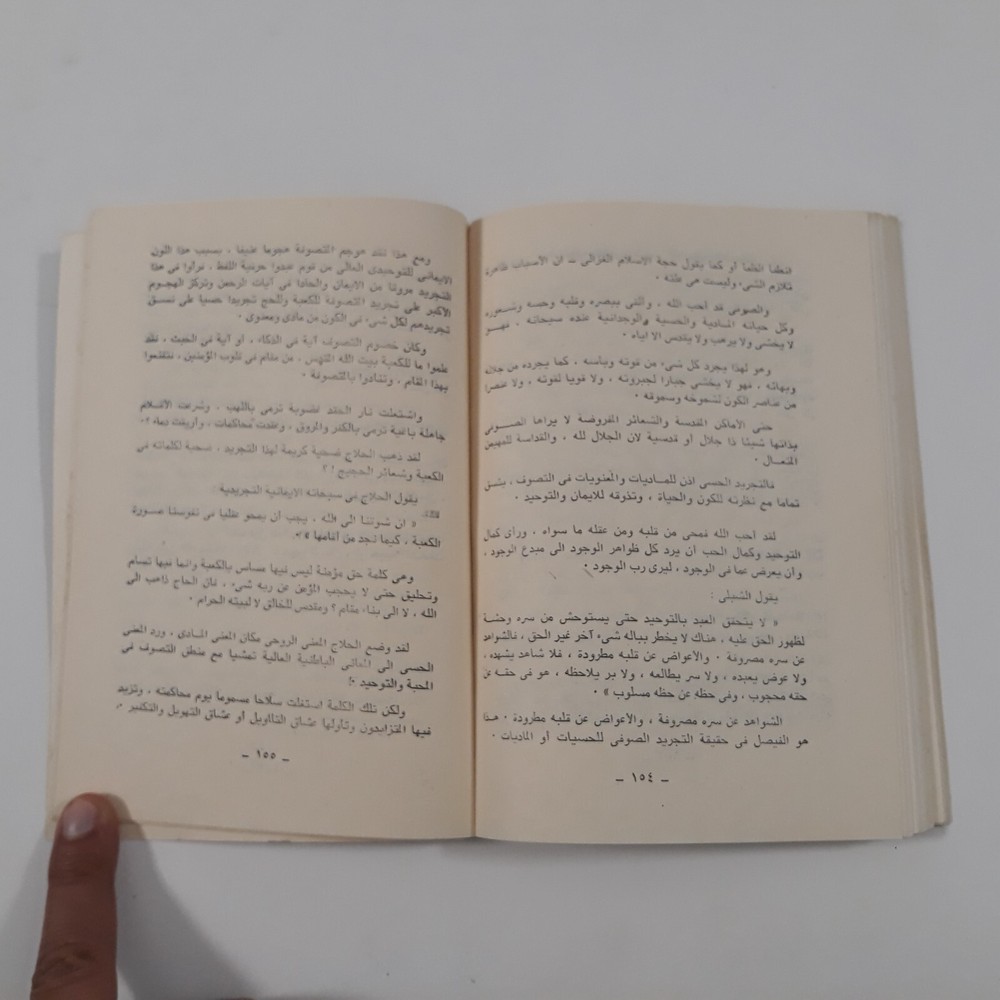 انطفأ الظمأ أو كما يقول حجة الإسلام الغزالى ــ ان الأسباب ظاهرة
تلازم الشىء وليست هى علته ٠
والصوفى قد أحب الله ، والقى ببصره وقلبه وحسه وشعوره
وكل حياته المادية والحسية والوجدانية عنده سبحانه ، فهو
لا يخشى ولا يرهب ولا يقدس الا اياه ٠
وهو لهذا يجرد كل شىء من قوته وبأسه ، كما يجرده من جلاله
وبهائه ، فهو لا يخشى جبارا لجبروته ، ولا قويا لقوته ، ولا عنصرا
من عناصر الكون لشموخه وسموقه ٠
حتى الأماكن المقدسة والشعائر المفروضة لا يراها الصوفى
بذاتها شيئا ذا جلال أو قدسية لان الجلال لله ، والقداسة للمهيمن
المتعال ٠
فالتجريد الحسى اذن للماديات والمعنويات فى التصوف ، يتسق
تماما مع نظرته للكون والحياة ، وتذوقه للايمان والتوحيد ٠
لقد أحب الله فمحى من قلبه ومن عقله ما سواه ، ورأى كمال
التوحيد وكمال الحب أن يرد كل ظواهر الوجود الى مبدع الوجود ،
وأن يعرض عما فى الوجود ، ليرى رب الوجود ٠
يقول الشبلى :
« لا يتحقق العبد بالتوحيد حتى يستوحش من سره وحشة
لظهور الحق عليه ، هناك لا يخطر بباله شىء آخر غير الحق ، فالشواهد
عن سره مصروفة ٠ والأعواض عن قلبه مطرودة ، فلا شاهد يشهده ،
ولا عوض يعبده ، ولا سر يطالعه ، ولا بر يلاحظه ، هو فى حقه عن
حقه محجوب ، وفى حظه عن حظه مسلوب » ٠
الشواهد عن سره مصروفة ، والأعواض عن قلبه مطرودة ٠ هذا
هو الفيصل فى حقيقة التجريد الصوفى للحسيات أو الماديات ٠
ــ ١٥٤ ــ
ومع هذا فقد هوجم التصوفة هجوما عنيفا ، بسبب هذا اللون
الايمانى للتوحيدى العالى من قوم عبدوا حرفية اللفظ ، فرأوا فى هذا
التجريد مروقا من الايمان والحادا فى آيات الرحمن وتركز الهجوم
الأكبر على تجريد التصوفة للكعبة وللحج تجريدا حسيا على نسق
تجريدهم لكل شىء فى الكون من مادى ومعنوى ٠
وكان خصوم التصوف آية فى الذكاء ، أو آية فى الخبث ، فقد
علموا ما للكعبة بيت الله من مقام فى قلوب المؤمنين ،
بهذا المقام ، وتنادوا بالتصوفة ٠
واشتعلت نار الحقد غضوبة ترمى باللهب ، وشرعت الأقلام
جاهلة باغية ترمى بالكفر والمروق ، وعقدت محاكمات ، وأريقت دماء ٠٠
لقد ذهب الحلاج ضحية كريمة لهذا التجريد ، ضحية لكلماته فى
الكعبة وشعائر الحجيج ! ؟
يقول الحلاج فى سبحاته الايمانية التجريدية
« ان شوقنا الى الله ، يجب أن يمحو عقليا فى نفوسنا صورة
الكعبة ، كيما نجد من أقامها » ٠
وهى كلمة حق مؤمنة ليس فيها مساس بالكعبة وانما فيها تسام
وتحليق حتى لا يحجب المؤمن عن ربه شىء ، فان الحاج ذاهب الى
الله ، لا الى بناء مقام ؟ ومقدس للخالق لا لبيته الحرام ٠
لقد وضع الحلاج المعنى الروحى مكان المعنى المادى ، ورد المعنى
الحسى الى المعانى الباطنية العالية تمشيا مع منطق التصوف فى
المحبة والتوحيد ٠
ولكن تلك الكلمة استغلت سلاحا مسموما يوم محاكمته ، وتزيد
فيها المتزايدون وتأولها عشاق التأويل أو عشاق التهويل والتكفير ٠
ــ ١٥٥ ــ